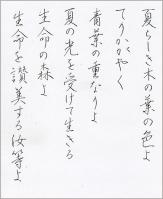 夏らしき木の葉の色よ
てりかがやく
青葉の重なりよ
夏の光を受けて生きる
生命の森よ
生命を讃美する汝等よ